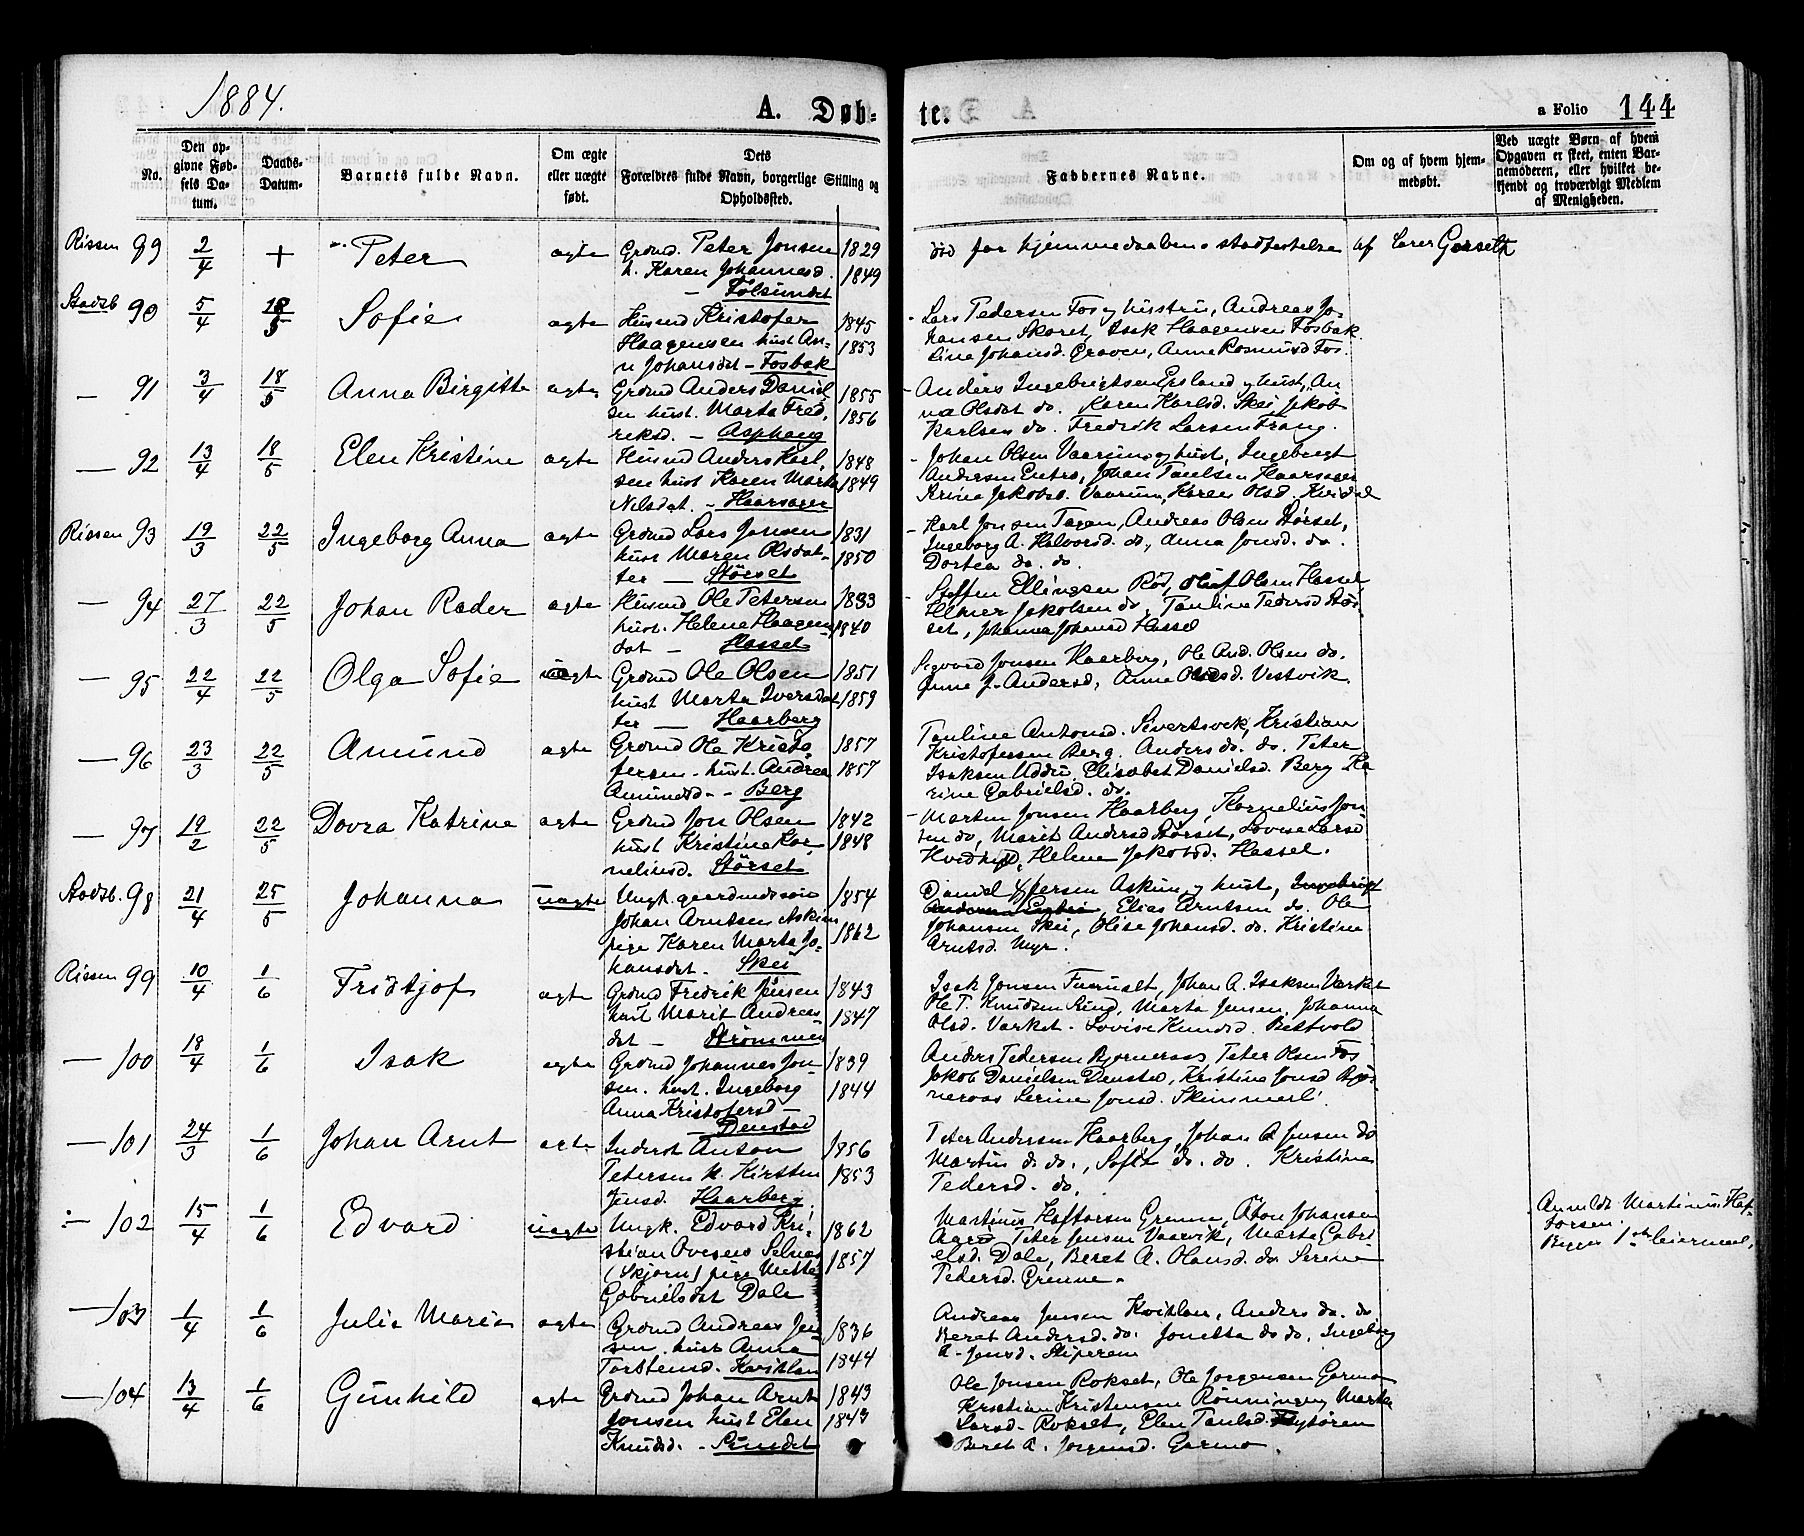 1884.
A. Døb-
te.
a Folio 144
No.
Den op-
givne Fød-
sels Da-
tum.
Daabs-
Datum.
Barnets fulde Navn.
Om ægte
eller uægte
født.
Dets
Forældres fulde Navn, borgerlige Stilling og
Opholdssted.
Faddernes Navne.
Om og af hvem hjem-
medøbt.
Ved uægte Børn af hvem
Opgaven er skeet, enten Bar-
nemoderen, eller hvilket be-
kjendt og troværdigt Medlem
af Menigheden.
Rissen 89 2/4 + Peter ægte Grdmd. Peter Jonsen 1829
h. Karen Johannesd. 1849
død før hjemmedaabens stadfæstelse af Lærer Gorseth
Stadsb 90 5/4 18/5 Sofie ægte Husmd Kristofer 1845
Haagensen hust An- 1853
n Johansdat - Fosbak
Lars Pedersen Fos og hustru, Andreas Jo-
hansen Skaret, Isak Haagensen Fosbak
Line Johansd. Graven, Anne Rasmusd Fos.
- 91 3/4 18/5 Anna Birgitte ægte Grdmd Anders Daniel 1855
sen hust. Marta Fred, 1856
riksd. - Asphaug
Anders Ingebrigtsen Ersland og hust, An
na Olsdat do. Karen Karlsd. Skei, Jakob
Karlsen do. Fredrik Larsen Frang.
- 92 13/4 18/5 Elen Kristine ægte Husmd Anders Karl, 1848
sen hust Karen Marta 1849
Nilsdat. - Haarsager
Johan Olsen Vaarum og hust, Ingebrigt
Andersen Entrø, Johan Paulsen Haarsager
Trine Jakobsd. Vaarum, Karen Olsd.
Rissen 93 19/3 22/5 Ingeborg Anna ægte Grdmd Lars Jonsen 1831
hust Maren Olsdat- 1850
ter - Størset
Karl Jonsen Andreas Olsen Størset,
Ingeborg A. Halvorsd. do, Anna Jonsd. do.
Dortea do. do.
- 94 27/3 22/5 Johan Rader ægte Husmd Ole Petersen 1833
hust. Helena Haagens 1840
dat - Hassel
Steffen Ellingsen Rød, Oluf Olsen Hassel
Elmer Jakobsen do, Pauline Pedersd Stør
set, Johanna Johansd Hassel
- 95 22/4 22/5 Olga Sofie ægte Grdmd Ole Olsen 1851
hust Marta Iversdat 1859
ter - Haarberg
Sigvard Jonsen Haarberg, Ole And. Olsen do.
Anne J. Andersd, Anne Olesd. Vestvik
- 96 23/3 22/5 Amund ægte Grdmd Ole Kristo 1857
fersen - hust. Andrea 1857
Amundsd - - Berg
Pauline Antonsd. Sivertsvek, Kristian
Kristofersen Berg. Anders do. do. Peter
Isaksen Uddu, Elisabet Danielsd. Berg Ka
rine Gabrielsd. do.
- 97 19/2 22/5 Dovra Katrine ægte Grdmd Jon Olsen 1842
hust Kristine Kor 1848
neliusd. Størset
Morten Jonsen Haarberg, Kornelius Jon
sen do, Marit Andersd Størset, Lovise Larsd
Helene Jakobsd. Hassel.
Stadsb. 98 21/4 25/5 Johanna uægte Ungk. gaardmdssøn 1854
Johan Arntsen Askim
pige Karen Marta Jo- 1862
hansdat. Skei
Daniel Askim og hust, Ingebrigt
Elias Arntsen do. Ole
Johansen Skei, Olise Johansd. do. Kristine
Arntsd. Myr.
Rissen 99 10/4 1/6 Fridtjof ægte Grdmd Fredrik Jensen 1843
hust Marit Andreas- 1847
dat - Strømmen
Isak Jonsen Johan A. Isaksen Værket
Ole T. Knudsen Rind, Marta Jensen, Johanna
Olsd. Værket. Lovise Knudsd. Retvold
- 100 18/4 1/6 Isak ægte Grdmd Johannes Jon- 1839
sen. hust. Ingeborg 1844
Anna Kristofersd -
Denstad
Anders Pedersen Bjørneraas Peter Olsen Fos
Jakob Danielsen Denstad, Kristine Jonsd Bjør
neraas Serine Jonsd. Skimmeli
- 101 24/3 1/6 Johan Arnt ægte Inderst Anton 1856
Petersen h. Kirsten 1853
Jensd. Haarberg
Peter Andersen Haarberg, Johan A. Jensen do
Martin do. do., Sofia do. do. Kristine
Pedersd. do.
÷ - 102 15/4 1/6 Edvard uægte Ungk. Edvard Kri- 1862
stian Ovesen Selnes
(Skjørn) pige Mette 1857
Gabrielsdat Dale
Martinus Haftorsen Grønne, Johansen
Peter Jensen Vaarvik, Marta Gabri
elsd. Dale, Beret A. Olausd. do. Serine
Pedersd. Grønne.
Anmeldt Martinus Haf-
torsen.
Begges 1ste leiermaal,
- 103 1/4 1/6 Julie Marie ægte Grdmd Andreas Jen- 1836
sen. hust Anna 1844
Torstensd. Kvithlan
Andreas Jensen Kvithlan, Anders do. do
Beret Andersd. do. Jonetta do do, Ingeborg
A. Jensd.
- 104 13/4 1/6 Gunhild ægte Grdmd Johan Arnt 1843
Jonsen hust Elen 1843
Knudsd. - Sundet
Ole Jonsen Rokset, Ole Jørgensen Garmo
Kristian Kristensen Rønningen, Marta
Larsd. Rokset, Elen Paulsd.
Beret A. Jørgensd. Garmo.